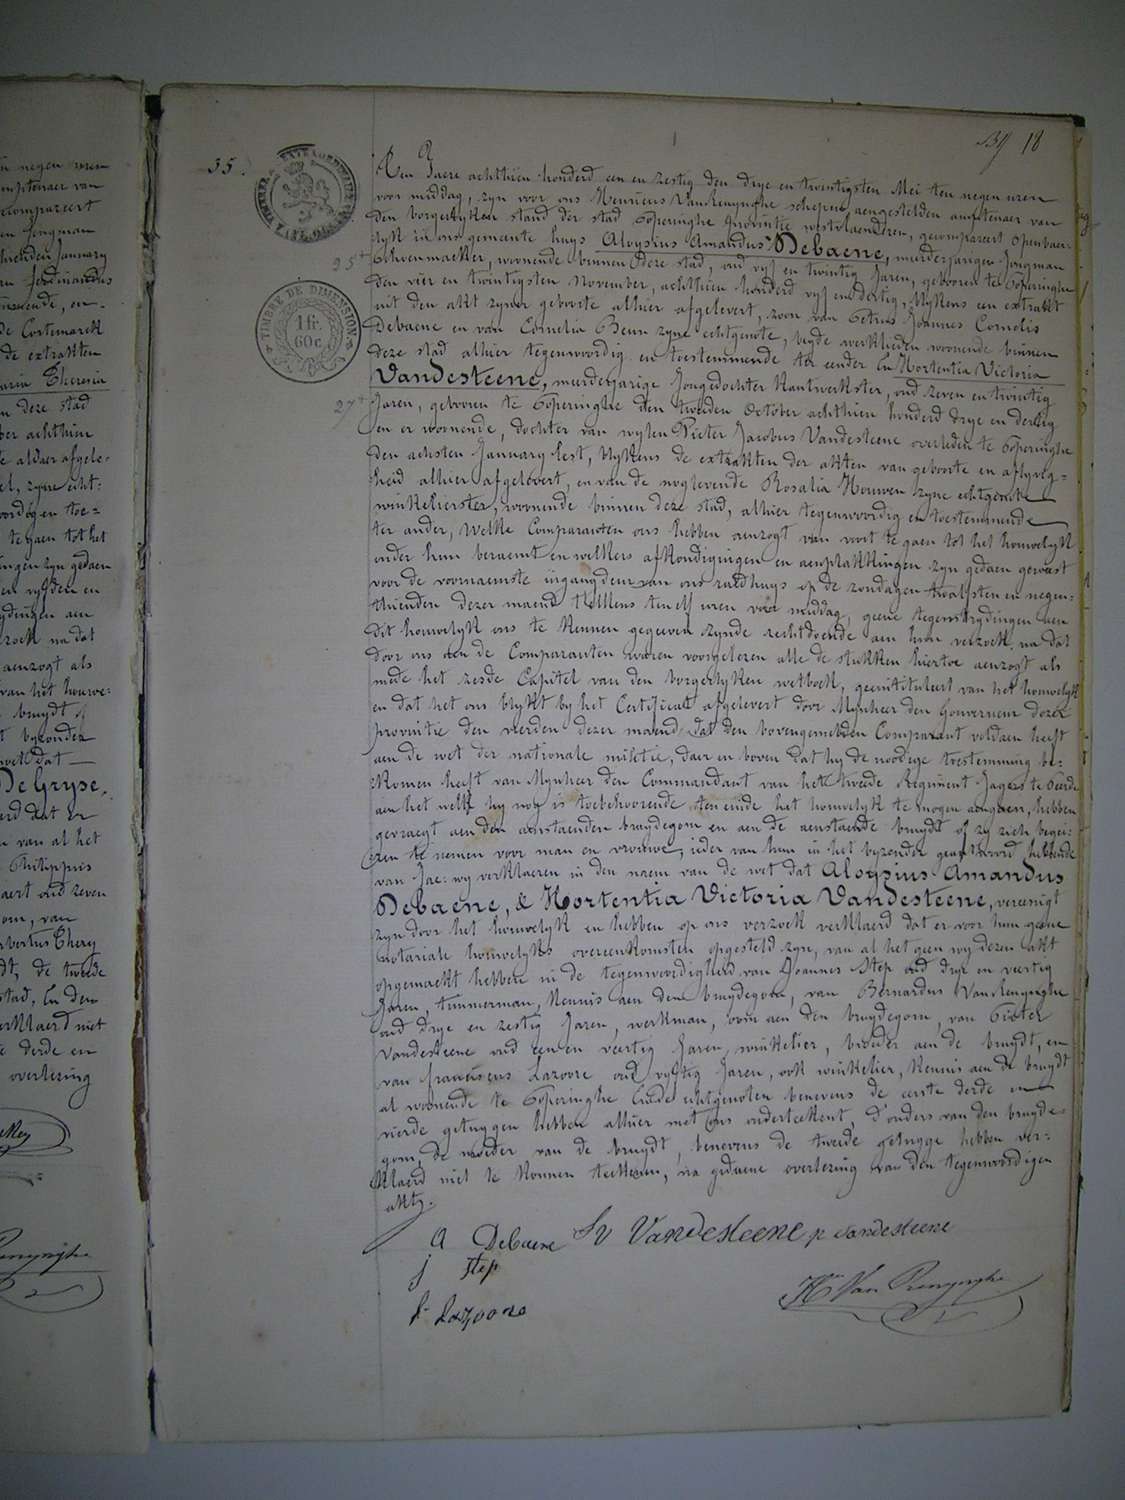 35.
TIMBRE DE DIMENSION
1 fr.
60 c.
18
Den Jaere achthien honderd een en zestig den drye en twintigsten Mei ten negen uren
voor middag, zyn voor ons Henricus VanRenynghe schepen aengestelden amptenaer van
den borgerlyken stand der stad Poperinghe provintie westvlaenderen, gecompareert openbaer-
lyk in ons gemeente huys Aloysius Amandus Debaene, meerderjarigen Jongman
25
schoenmaeker, woonende binnen deze stad, oud vyf en twintig Jaren, gebooren te Poperinghe
den vier en twintigsten November, achthien honderd vyf en dertig, blykens een extrakt
uit den akt zyner geboorte alhier afgelevert, zoon van Petrus Joannes Cornelis
Debaene en van Cornelia Beun zyne echtgenote, beyde werklieden woonende binnen
deze stad alhier tegenwoordig en toestemmende ter eender En Hortentia Victoria
Vandesteene, meerderjarige Jongedochter kantwerkster, oud zeven en twintig
27
Jaren, gebooren te Poperinghe den tweeden October achthien honderd drye en dertig
en er woonende, dochter van wylen Pieter Jacobus Vandesteene overleden te Poperinghe
den achsten January lest, blykens de extrakten der akten van geboorte en aflyvig-
heid alhier afgelevert, en van de noglevende Rosalia Houwen zyne echtgenote
winkelierster, woonende binnen deze stad, alhier tegenwoordig en toestemmende
ter ander, Welke Comparanten ons hebben aenzogt van voort te gaen tot het houwelyk
onder hun beraemt en welkers afkondigingen en aenplakkingen zyn gedaen geweest
voor de voornaemste ingangdeur van ons raedhuys op de zondagen twalfsten en negen-
thienden dezer maend telkens ten elf uren voor middag, geene tegenstrydingen aen
dit houwelyk ons te kennen gegeeven zynde rechtdoende aen hun verzoek, na dat
door ons aen de Comparanten waren voorgelezen alle de stukken hiertoe aenzogt als
mede het zesde Capittel van den borgerlyken wetboek, geintituleert van het houwelyk
en dat het ons blykt by het Certificat afgelevert door Mynheer den Gouverneur dezer
provintie den vierden dezer maend, dat den bovengemelden Comparant voldaen heeft
aen de wet der nationale militie, daer en boven dat hy de noodige toestemming be-
komen heeft van Mynheer den Commandant van het tweede Regiment Jagers te Voet
aen het welk hy nog is toebehoorende, ten einde het houwelyk te mogen aengaen, hebben
gevraegt aen den aenstaenden bruydegom en aen de aenstaende bruydt of zy zich begee-
ren te nemen voor man en vrouwe, ieder van hun in het byzonder geantwoord hebbende
van Jae: wy verklaeren in den naem van de wet dat Aloysius Amandus
Debaene, & Hortentia Victoria Vandesteene, vereenigt
zyn door het houwelyk en hebben op ons verzoek verklaerd dat er voor hun geene
notariale houwelyks overeenkomsten opgesteld zyn, van al het geen wy dezen akt
opgemaekt hebben in de tegenwoordigheid van Joannes Step oud drye en veertig
Jaren, timmerman, kennis aen den bruydegom, van Bernardus VanRenynghe
oud drye en zestig Jaren, werkman, oom aen den bruydegom, van Pieter
Vandesteene oud een en veertig Jaren, winkelier, broeder aen de bruydt, en
van franciscus Lazoore oud vyftig Jaren, ook winkelier, kennis aen de bruydt
al woonende te Poperinghe Ende echtgenoten benevens de eerste derde en
vierde getuygen hebben alhier met ons onderteekent, d'ouders van den bruyde-
gom, de moeder van de bruydt, benevens de tweede getuyge hebben ver-
klaerd niet te konnen teekenen, na gedaene overlezing van den tegenwoordigen
akt.
A Debaene H V Vandesteene p vandesteene
j Step
f. Lazoore
Hri Van Renynghe